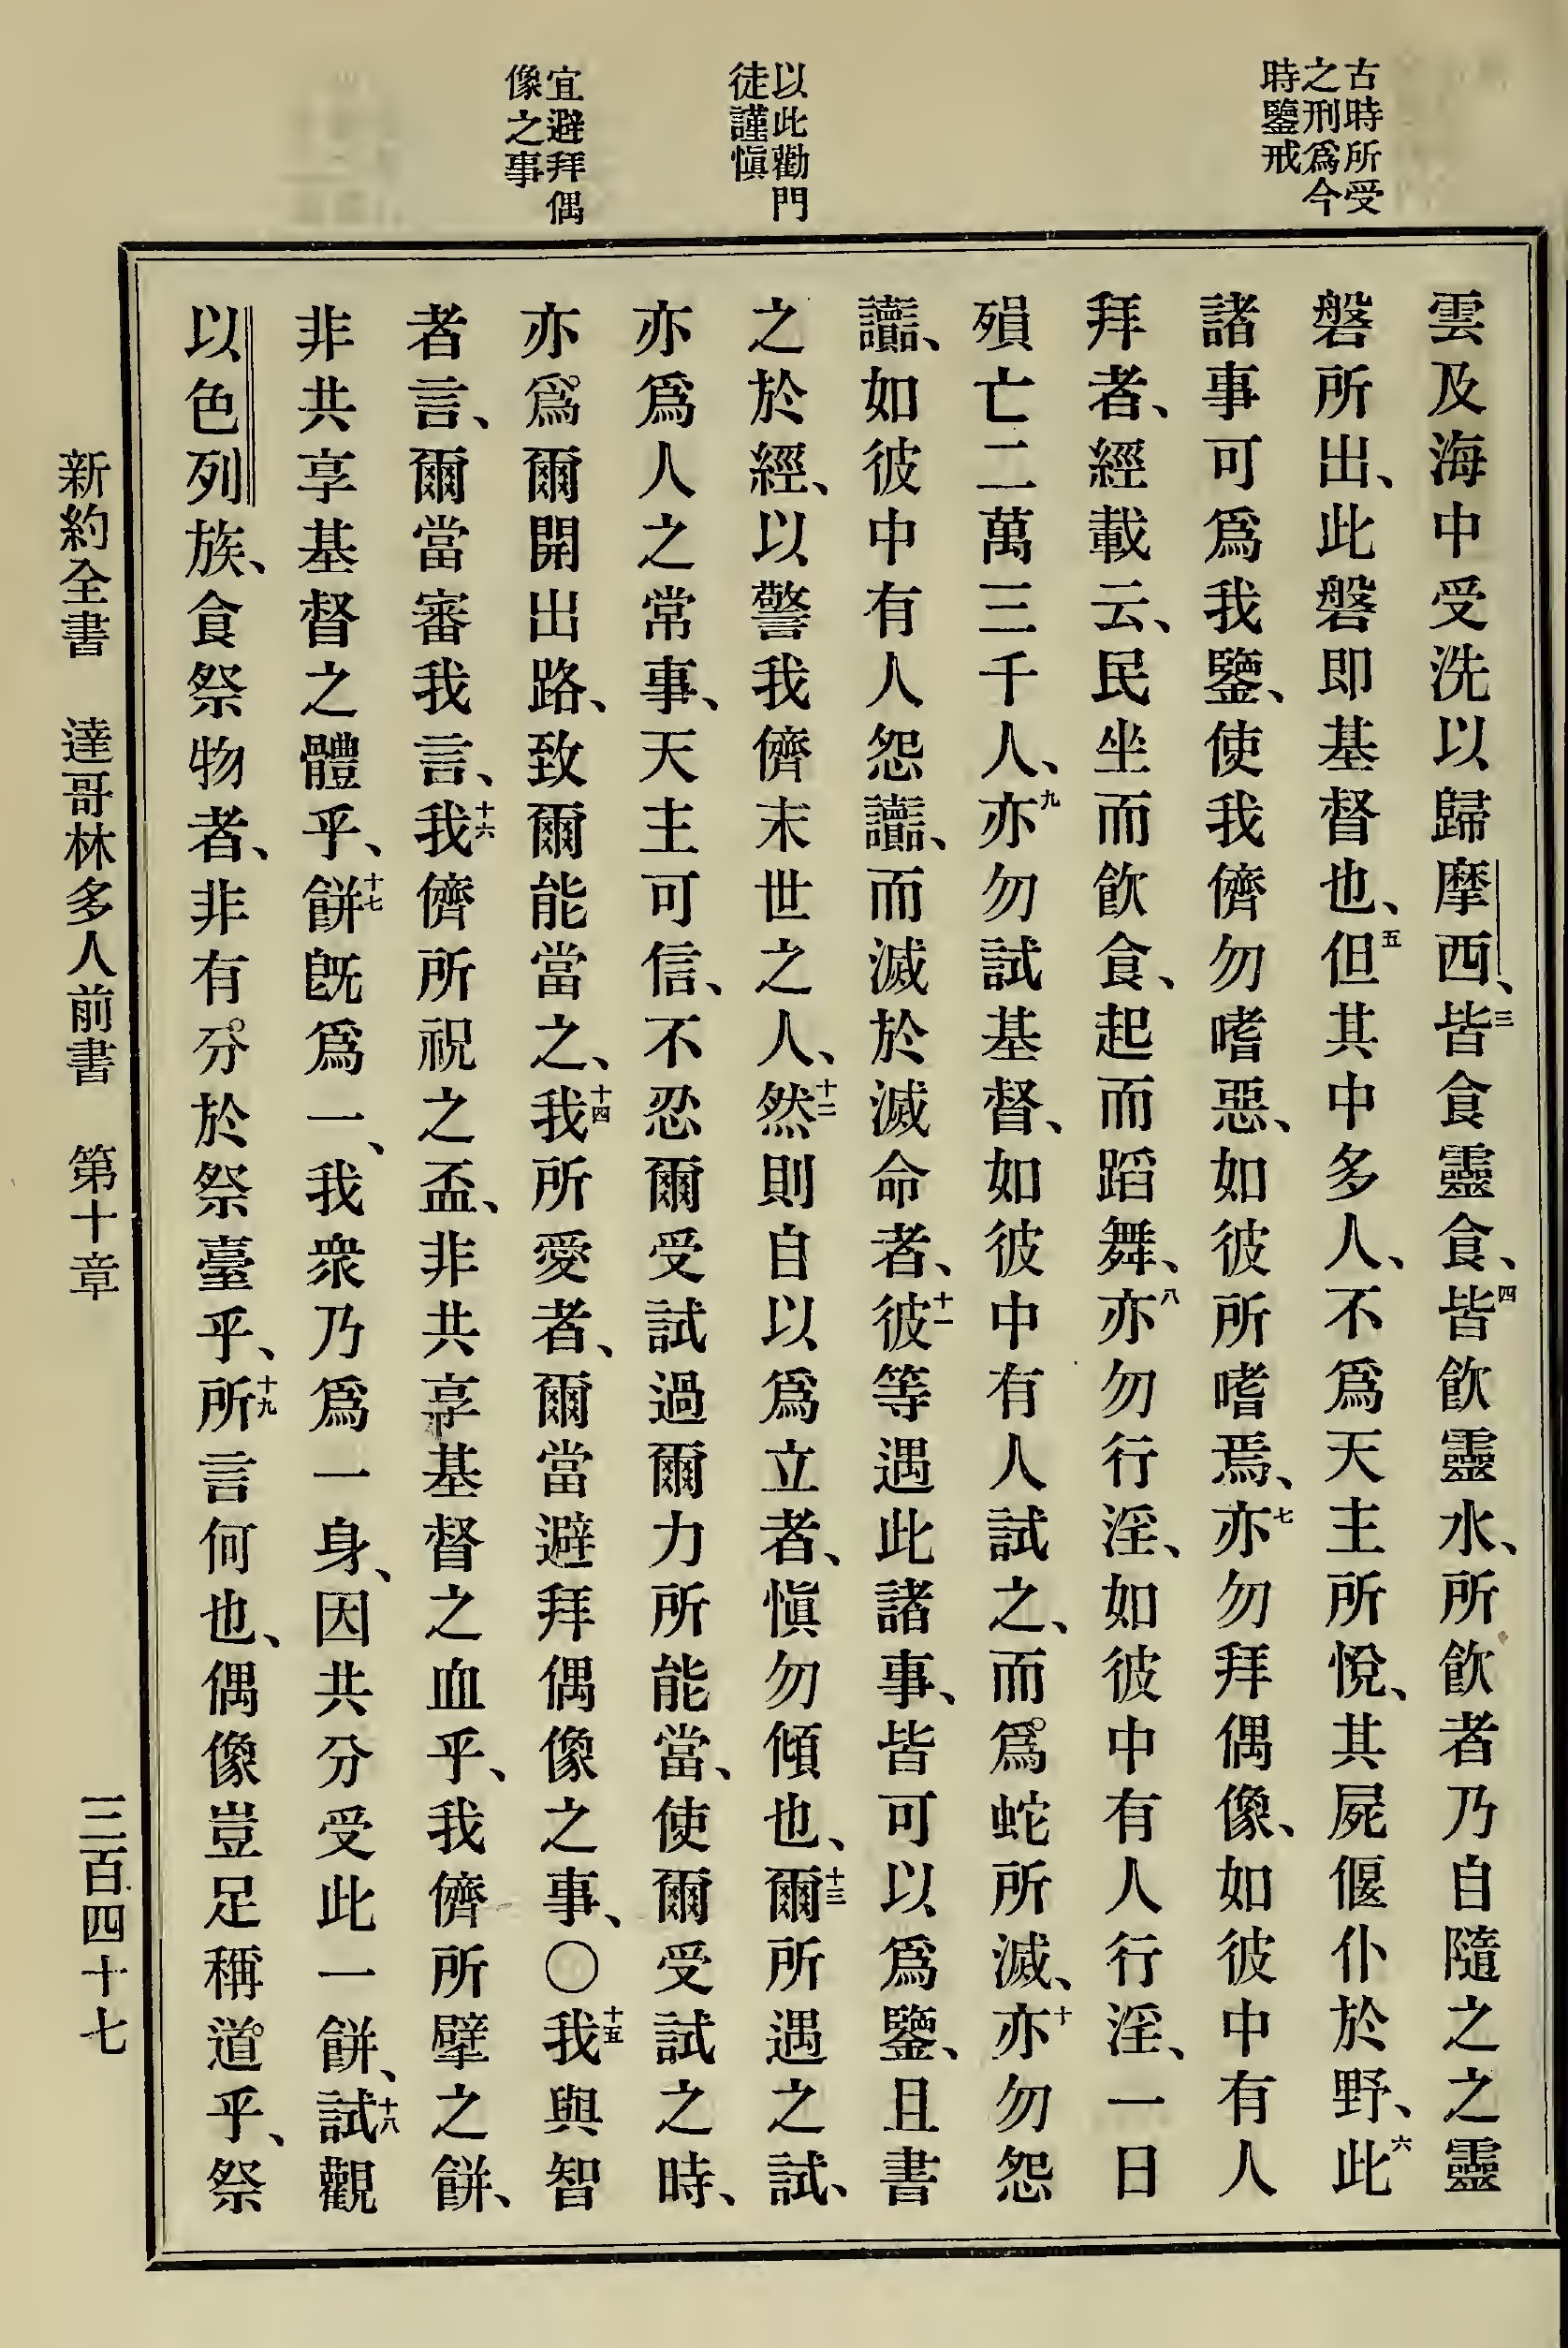 古時所受
之刑爲今
時鑒戒
以此勸門
徒謹愼
宜避拜偶
像之事
雲及海中受洗以歸摩西、三皆食靈食、四皆飮靈水、所飮者乃自隨之之靈
磐所出、此磐卽基督也、五但其中多人、不爲天主所悅、其屍偃仆於野、六此
諸事可爲我鑒、使我儕勿嗜惡、如彼所嗜焉、七亦勿拜偶像、如彼中有人
拜者、經載云、民坐而飮食、起而蹈舞、八亦勿行淫、如彼中有人行淫、一日
殞亡二萬三千人、九亦勿試基督、如彼中有人試之、而爲蛇所滅、十亦勿怨
讟、如彼中有人怨讟、而滅於滅命者、十一彼等遇此諸事、皆可以爲鑒、且書
之於經、以警我儕末世之人、十二然則自以爲立者、愼勿傾也、十三爾所遇之試、
亦爲人之常事、天主可信、不忍爾受試過爾力所能當、使爾受試之時、
亦爲爾開出路、致爾能當之、十四我所愛者、爾當避拜偶像之事、〇十五我與智
者言、爾當審我言、十六我儕所祝之盃、非共享基督之血乎、我儕所擘之餅、
非共享基督之體乎、十七餅旣爲一、我衆乃爲一身、因共分受此一餅、十八試觀
以色列族、食祭物者、非有分於祭臺乎、十九所言何也、偶像豈足稱道乎、祭
新約全書 達哥林多人前書 第十章 三百四十七